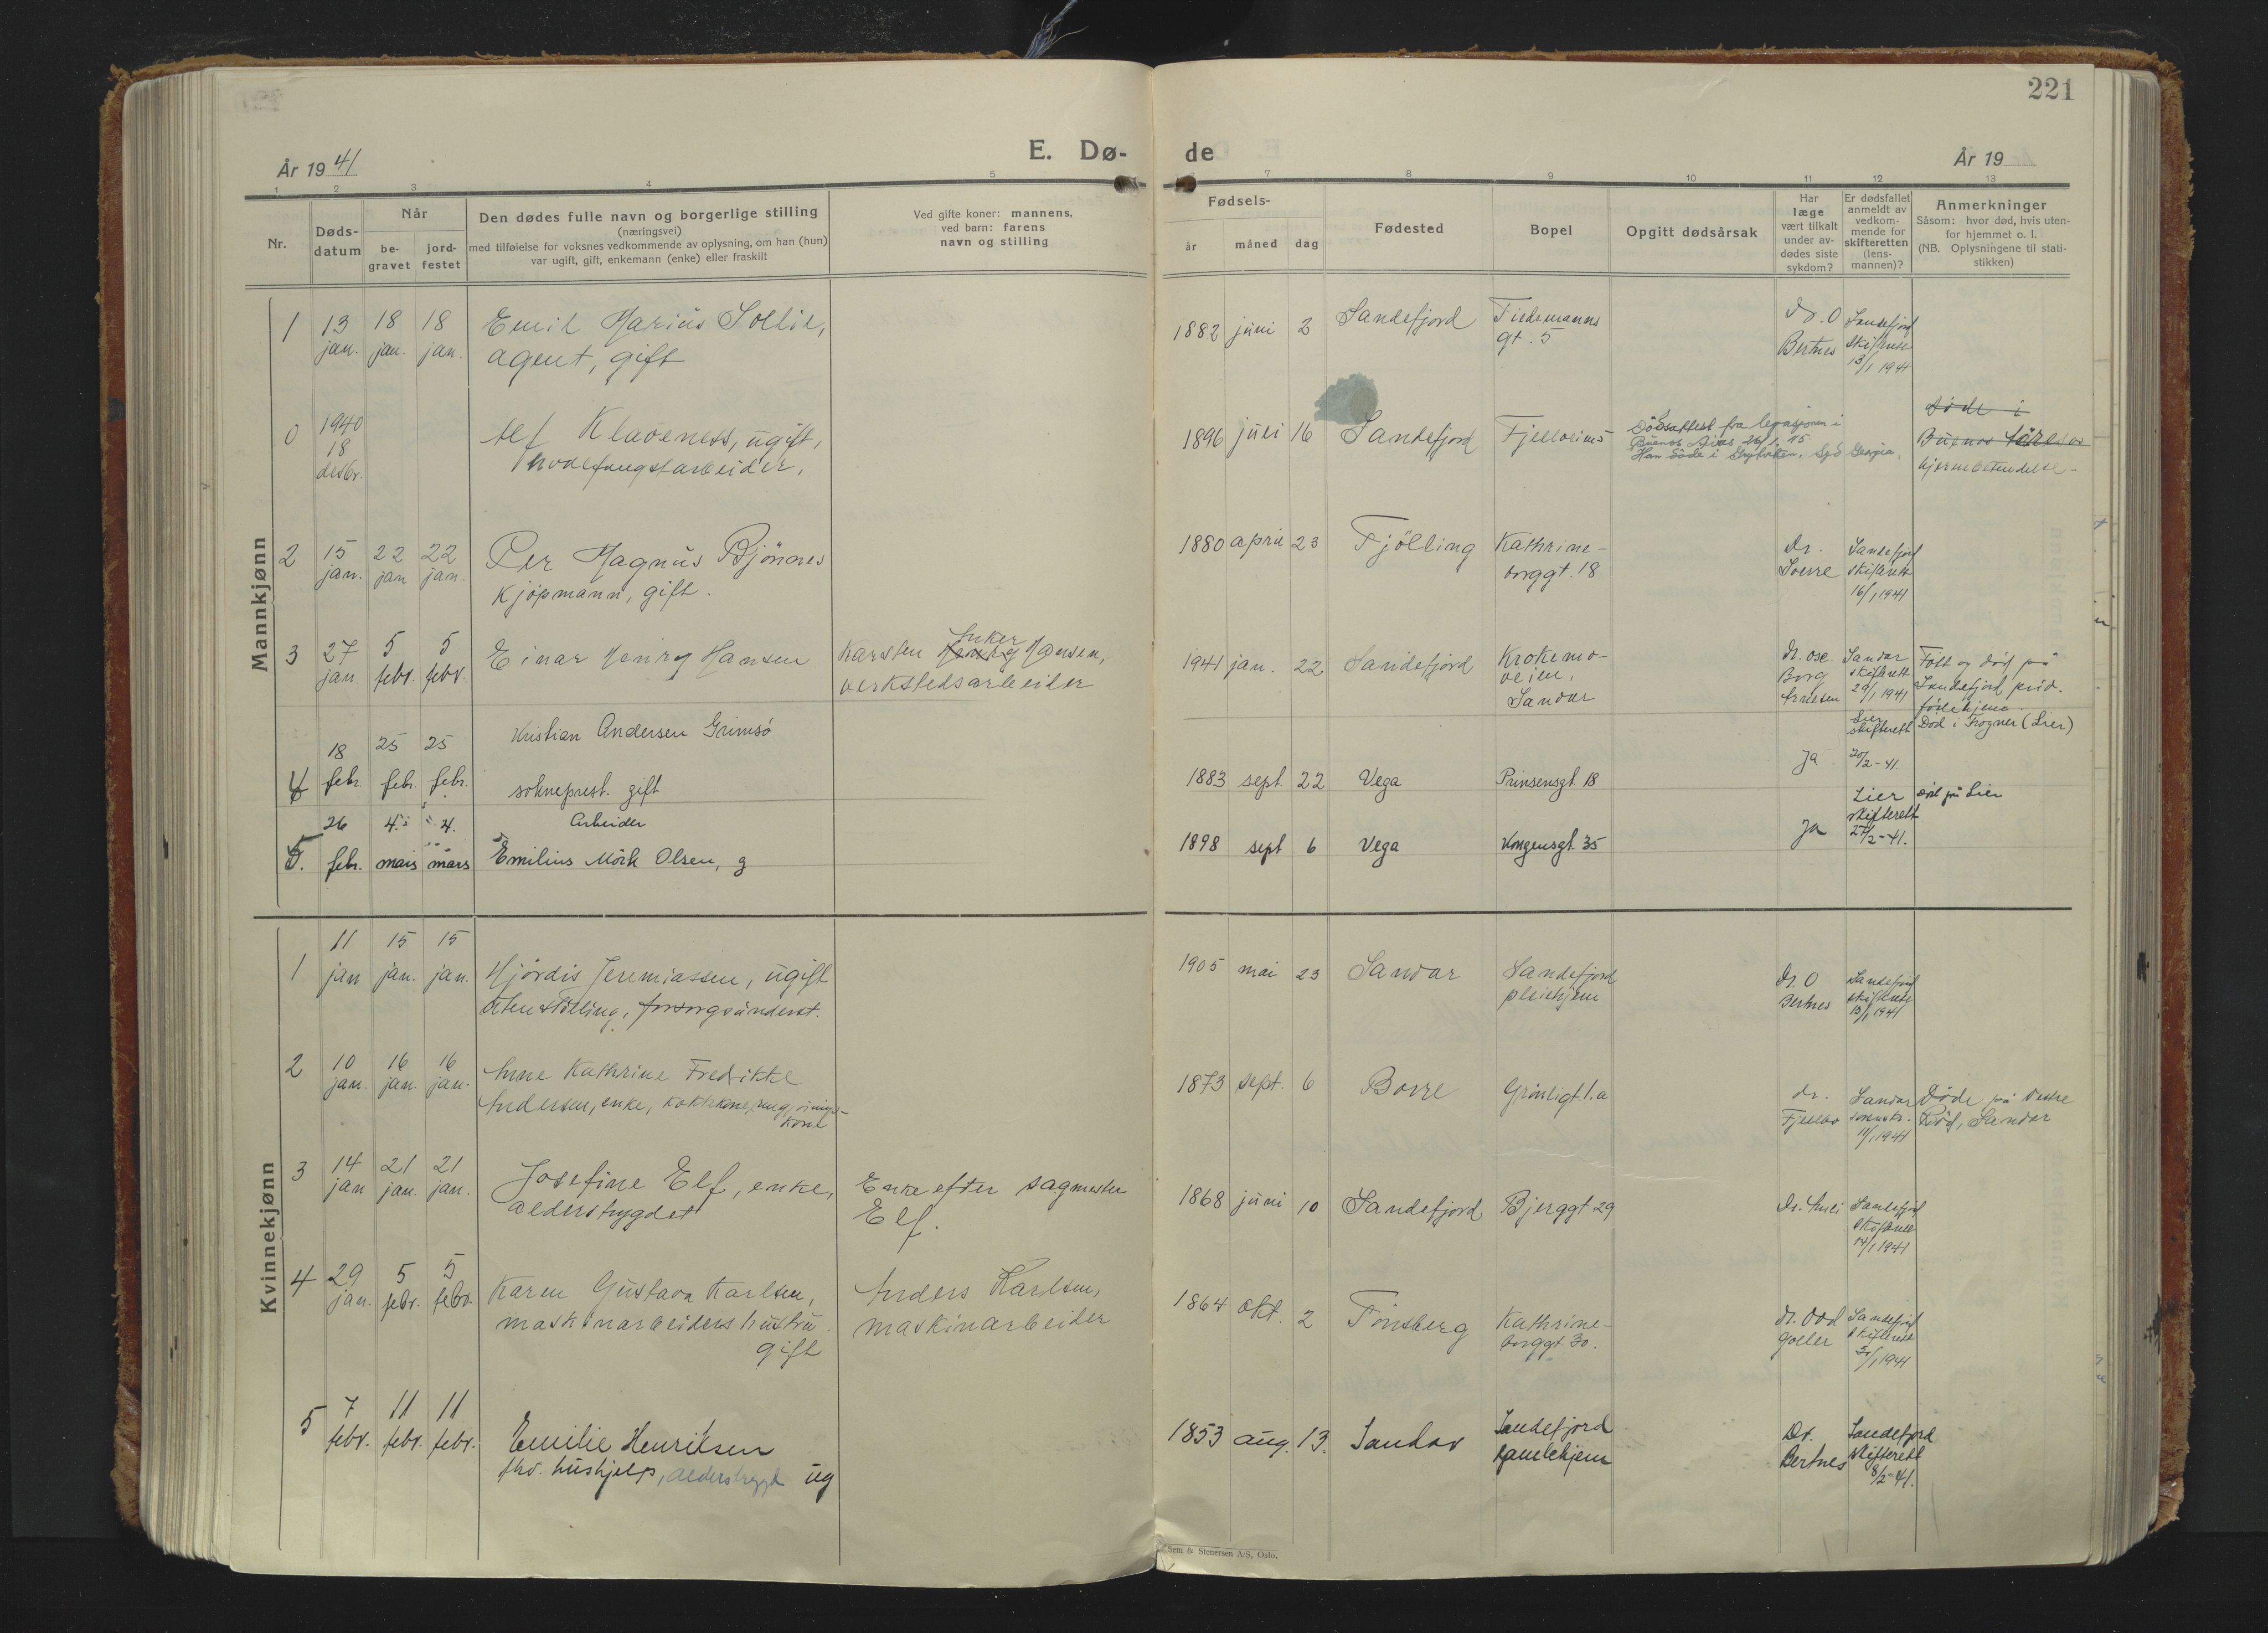 221
E. Dø-
de
År 19 41
År 19
1 2 3 4 5
7 8 9 10 11 12 13
Nr.
Døds-
datum
Når
be-
gravet
jord-
festet
Den dødes fulle navn og borgerlige stilling
(næringsvei)
med tilføielse for voksnes vedkommende av oplysning, om han (hun)
var ugift, gift, enkemann (enke) eller fraskilt
Ved gifte koner: mannens,
ved barn: farens
navn og stilling
Fødsels-
år måned dag
Fødested
Bopel
Opgitt dødsårsak
Har
læge
vært tilkalt
under av-
dødes siste
sykdom?
Er dødsfallet
anmeldt av
vedkom-
mende for
skifteretten
(lens-
mannen)?
Anmerkninger
Såsom: hvor død, hvis uten-
for hjemmet o. l.
(NB. Oplysningene til stati-
stikken)
Mannkjønn
1 13 18 18 Emil Marius Sollie,
jan. jan. jan. agent, gift
1882 juni 2 Sandefjord Tidemanns
gt. 5
Dr. O
Bertnes
Sandefjord
skifterett
13/1 1941
0 1940
18
desbr.
Alf Klaveness, ugift,
hvalfangstarbeider.
1896 juli 16 Sandefjord Fjellveim 5
Dödsattest fra legasjonen i
Buenos Aires 26/1. 45
Han döde i Grytviken, Syd Georgia.
døde i
Buenos Aires av
hjernebetendelse
2 15 22 22 Per Magnus Bjönnes
jan. jan jan. kjöpmann, gift.
1880 april 23 Tjölling Kathrine-
borggt. 18
Dr.
Sverre
Sandefjord
skifterett
16/1 1941
3 27 5 5 Einar Henry Hansen
jan. febr. febr.
Anker
Karsten Henry Hansen,
verkstedsarbeider
1941 jan. 22 Sandefjord Krokemo-
veien,
Sandar
Dr. Osc.
Borg
Arnesen
Sandar
skifterett
29/1 1941
Født og död på
Sandefjord priv.
födehjem.
4 18 25 25 Kristian Andersen Grimsö
febr. febr. febr. sokneprest. gift
1883 sept 22 Vega Prinsensgt 18
Ja
Lier
skifterett
20/2-41.
Död i Frogner (Lier)
5. 26 4. 4. Arbeider
febr. mars mars Emilius Mörk Olsen, g
1898 sept 6 Vega Kongensgt. 35
Ja
Lier
skifterett
27/2-41.
död på Lier
Kvinnekjønn
1 11 15 15
jan jan. jan. Hjördis Jeremiassen, ugift
uten stilling, forsorgsunderst.
1905 mai 23 Sandar Sandefjord
pleiehjem
Dr. O
Bertnes
Sandefjord
skifterett
13/1 1941
2 10 16 16 Anne Kathrine Fredrikke
jan. jan. jan. Andersen, enke, kokkekone,
kone
1873 sept. 6 Borre Grönligt. 1. a
dr.
Fjellbo
Sandar
11/1 1941
Döde på Vestre
Röd, Sandar
3 14 21 21 Josefine Elf, enke,
jan jan. jan. alderstrygdet
Enke efter sagmester
Elf.
1868 juni 10 Sandefjord Bjerggt 29
Dr.
Sandefjord
skifterett
14/1 1941
4 29 5 5 Karen Gustava Karlsen,
jan. febr. febr. maskinarbeiders hustru
gift
Anders Karlsen,
maskinarbeider
1864 okt. 2 Tönsberg Kathrine-
borggt 30.
dr. Odd
Goller
Sandefjord
skifterett
30/1 1941
5 7 11 11 Emilie Henriksen
febr. febr. febr. fhv. hushjelp, alderstrygd ug
1853 aug. 13. Sandar Sandefjord
gamlehjem
Dr.
Bertnes
Sandefjord
skifterett
8/2-41.
Sem & Stenersen A/S, Oslo.